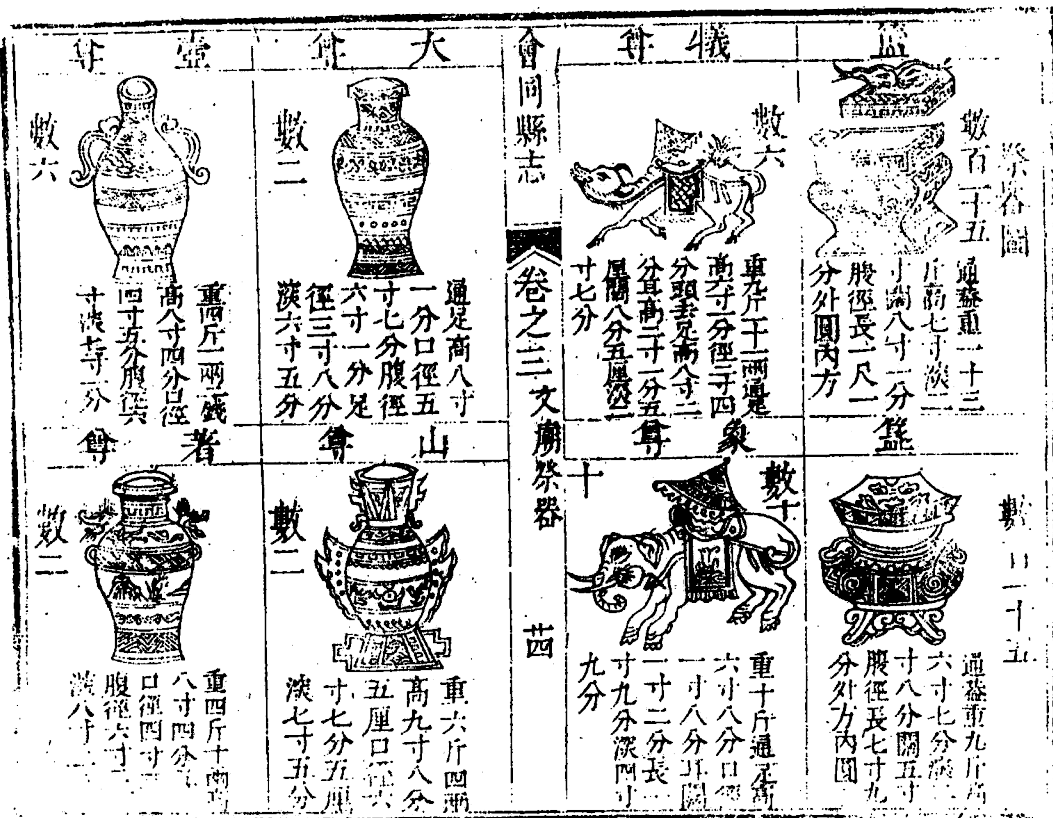 祭器圖
簠
數百二十五
通蓋重一十三
斤高七寸深二
寸闊八寸一分
腹徑長一尺一
分外圓內方
簋
數百二十五
通蓋重九斤高
六寸七分深二
寸八分闊五寸
腹徑長七寸九
分外方內圓
犧尊
數六
重九斤一十一兩通足
高六寸一分徑三寸四
分頭至足高八寸二
分耳高二寸一分五
厘闊八分五厘深二
寸七分
象尊
數十
重十斤通足高
六寸八分口徑
一寸八分耳闊
一寸二分長一
寸九分深四寸
九分
會同縣志
卷之三
文廟祭器
十
廿四
大尊
數二
通足高八寸
一分口徑五
寸七分腹徑
六寸一分足
徑三寸八分
深六寸五分
山尊
數二
重六斤四兩
高九寸八分
五厘口徑六
寸七分五厘
深七寸五分
壺尊
數六
重四斤一兩二錢
高八寸四分口徑
四寸五分腹徑六
寸深七寸一分
著尊
數二
重四斤十兩高
八寸四分
口徑四寸
腹徑六寸
深八寸